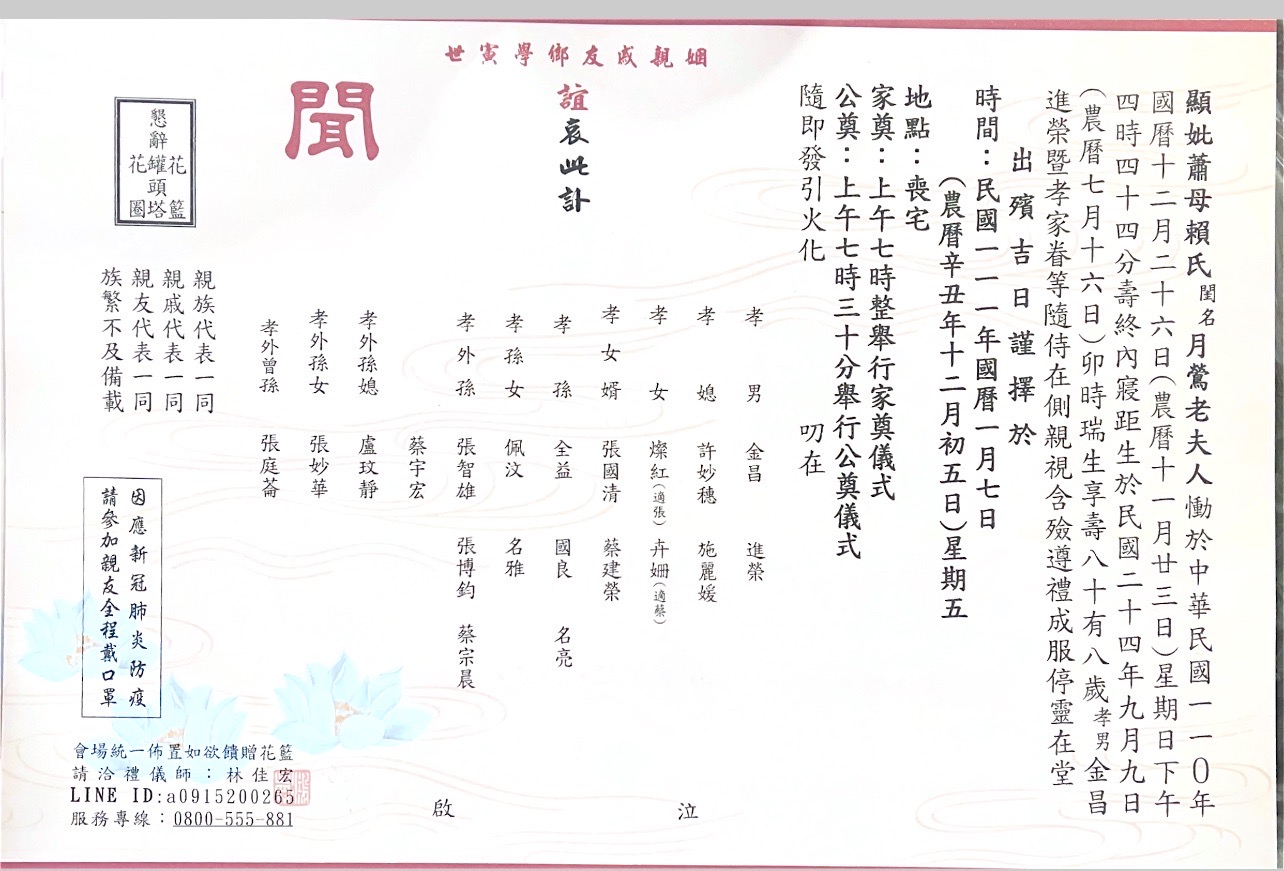 顯妣蕭母賴氏閨名月鶯老夫人慟於中華民國一一〇年
國曆十二月二十六日(農曆十一月廿三日)星期日下午
四時四十四分壽終內寢距生於民國二十四年九月九日
(農曆七月十六日)卯時瑞生享壽八十有八歲孝男金昌
進榮暨孝家眷等隨侍在側親視含殮遵禮成服停靈在堂
出殯吉日謹擇於
時間：民國一一一年國曆一月七日
(農曆辛丑年十二月初五日)星期五
地點：喪宅
家奠：上午七時整舉行家奠儀式
公奠：上午七時三十分舉行公奠儀式
隨即發引火化 叨在
姻親戚友鄉學寅世
誼哀此訃
聞
孝男 金昌 進榮
孝媳 許妙穗 施麗媛
孝女 燦紅(適張) 卉姍(適蔡)
孝女婿 張國清 蔡建榮
孝孫 全益 國良 名亮
孝孫女 佩汶 名雅
孝外孫 張智雄 張博鈞 蔡宗晨
蔡宇宏
孝外孫媳 盧玟靜
孝外孫女 張妙華
孝外曾孫 張庭菕
泣啟
親族代表一同
親戚代表一同
親友代表一同
族繁不及備載
懇辭
花籃
罐頭塔
花圈
因應新冠肺炎防疫
請參加親友全程戴口罩
會場統一佈置如欲饋贈花籃
請洽禮儀師：林佳宏
LINE ID:a0915200265
服務專線：0800-555-881